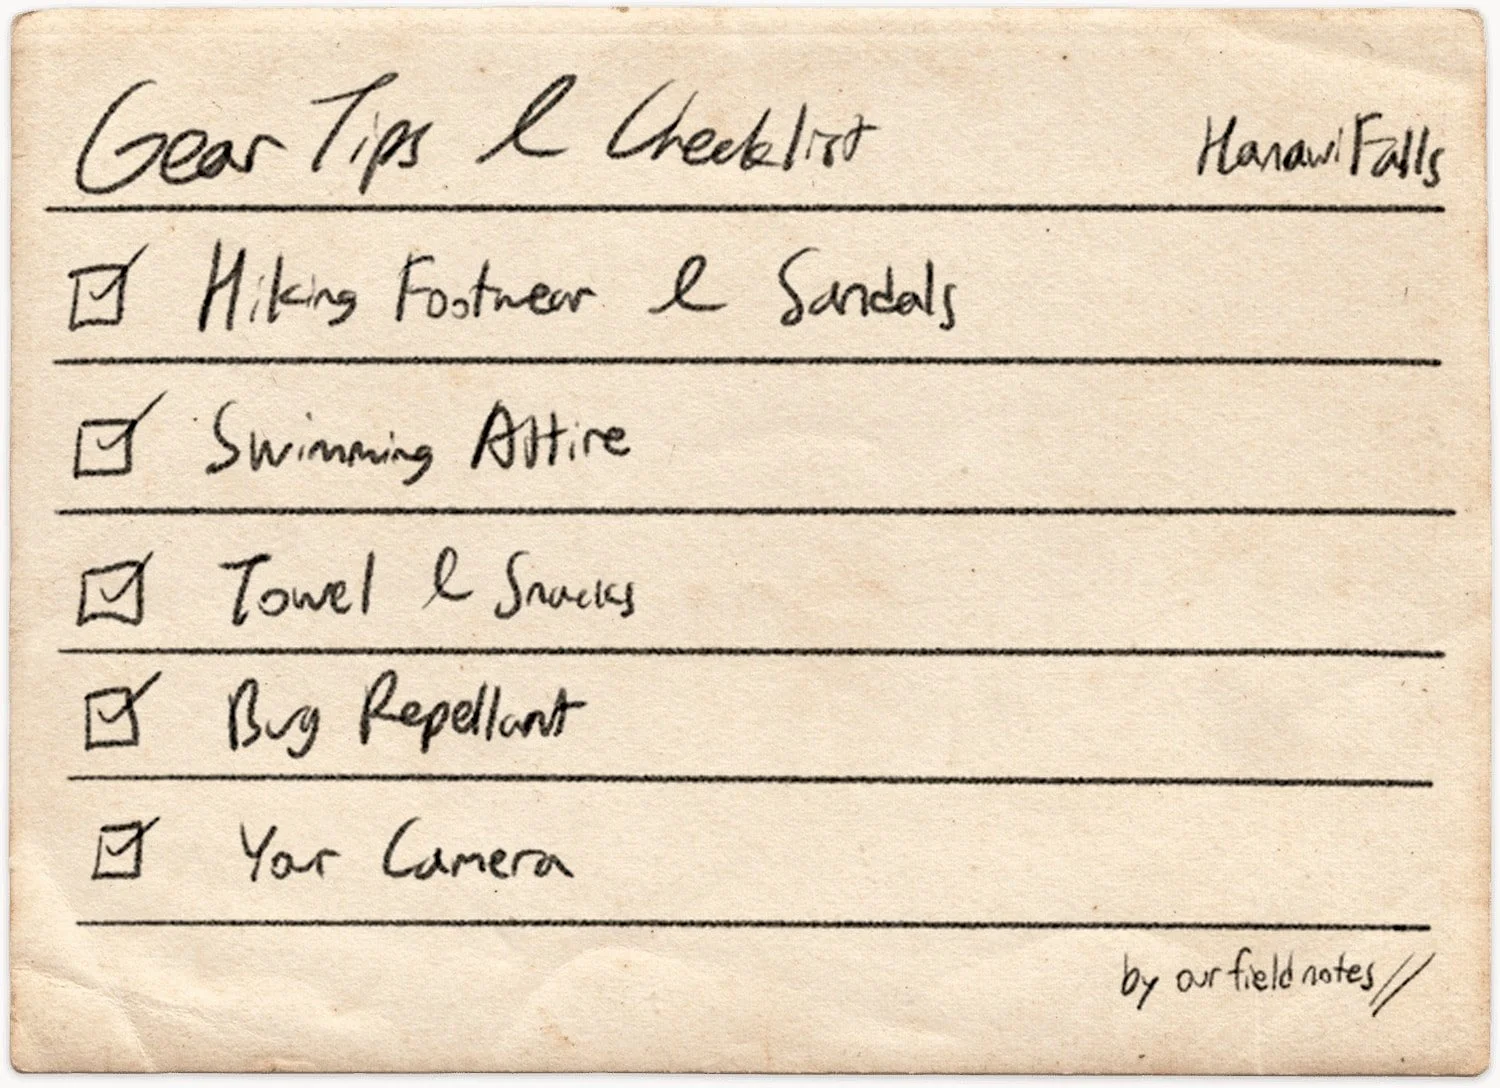 Gear Tips & Checklist
Hanawi Falls
Hiking Footwear & Sandals
Swimming Attire
Towel & Snacks
Bug Repellant
Your Camera
by our field notes//